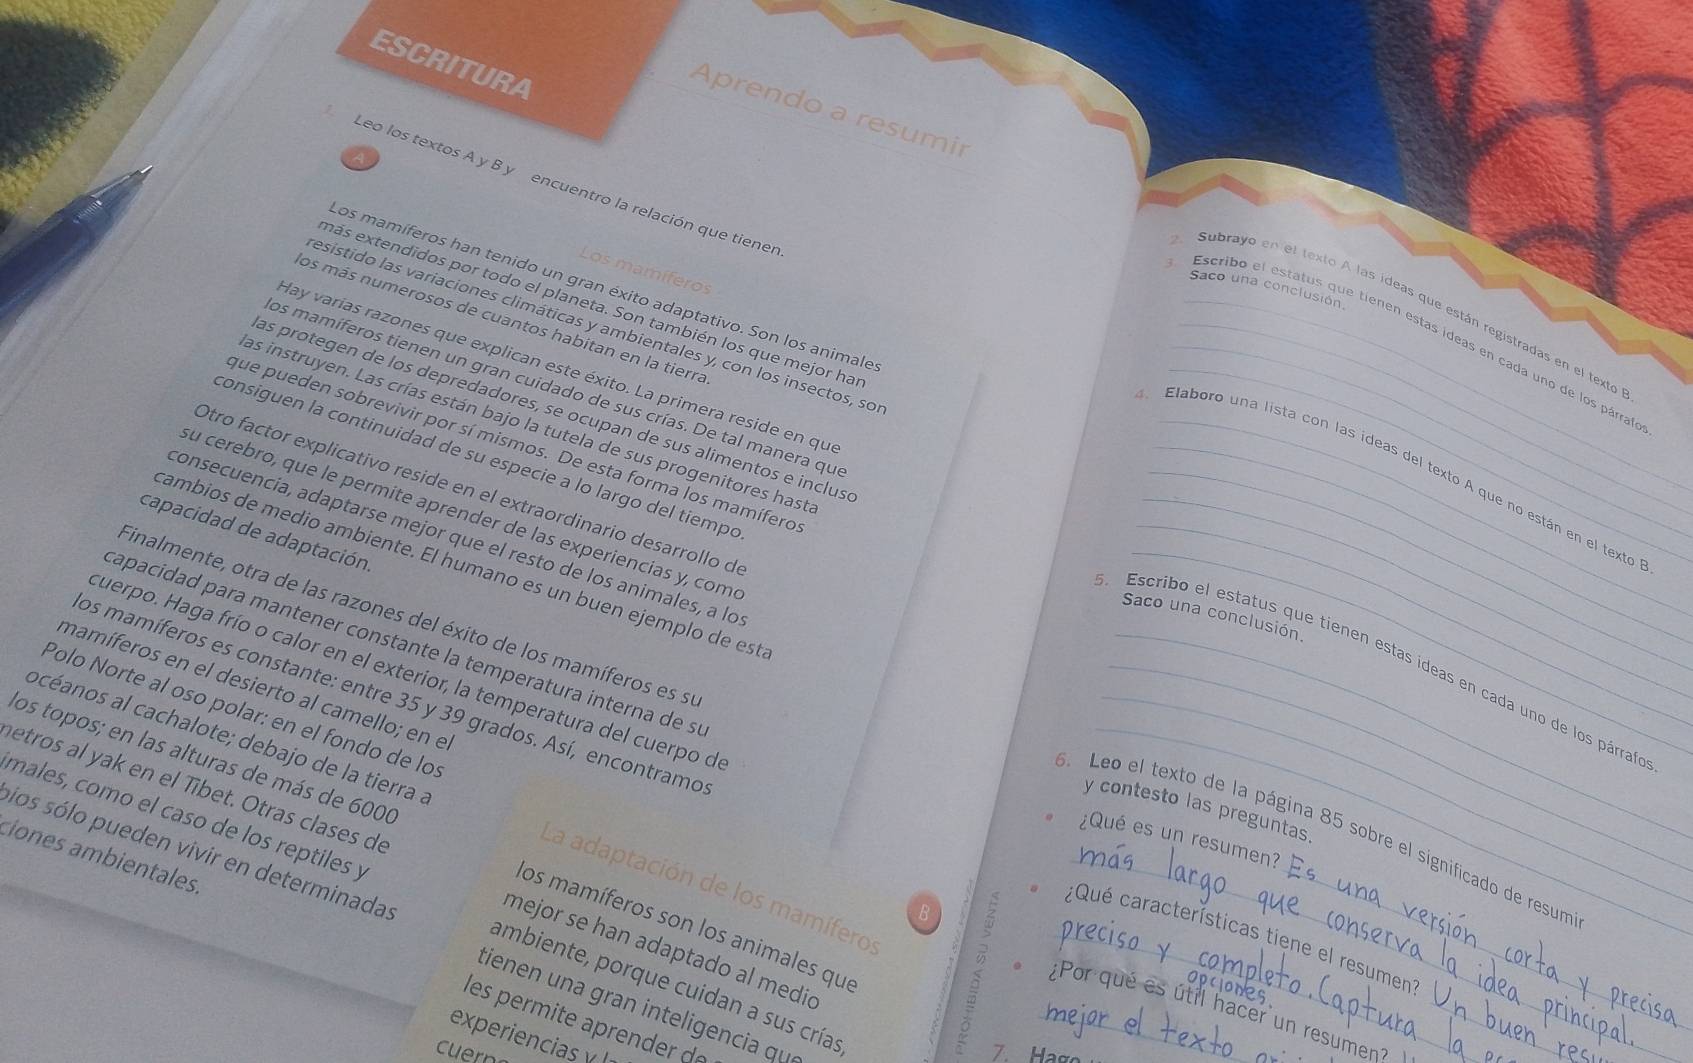 ESCRITURA
Aprendo a resumir
1. Leo los textos A y B y encuentro la relación que tienen.
A
Los mamíferos
Los mamíferos han tenido un gran éxito adaptativo. Son los animales
más extendidos por todo el planeta. Son también los que mejor han
resistido las variaciones climáticas y ambientales y, con los insectos, son
los más numerosos de cuantos habitan en la tierra.
Hay varias razones que explican este éxito. La primera reside en que
los mamíferos tienen un gran cuidado de sus crías. De tal manera que
las protegen de los depredadores, se ocupan de sus alimentos e incluso
las instruyen. Las crías están bajo la tutela de sus progenitores hasta
que pueden sobrevivir por sí mismos. De esta forma los mamíferos
consiguen la continuidad de su especie a lo largo del tiempo.
Otro factor explicativo reside en el extraordinario desarrollo de
su cerebro, que le permite aprender de las experiencias y, como
consecuencia, adaptarse mejor que el resto de los animales, a los
cambios de medio ambiente. El humano es un buen ejemplo de esta
capacidad de adaptación.
Finalmente, otra de las razones del éxito de los mamíferos es su
capacidad para mantener constante la temperatura interna de su
cuerpo. Haga frío o calor en el exterior, la temperatura del cuerpo de
los mamíferos es constante: entre 35 y 39 grados. Así, encontramos
mamíferos en el desierto al camello; en el
Polo Norte al oso polar; en el fondo de los
océanos al cachalote; debajo de la tierra a
los topos; en las alturas de más de 6000
metros al yak en el Tibet. Otras clases de
imales, como el caso de los reptiles y
bios sólo pueden vivir en determinadas
ciones ambientales.
La adaptación de los mamíferos
B
los mamíferos son los animales que
mejor se han adaptado al medio
ambiente, porque cuidan a sus crías,
tienen una gran inteligencia que
les permite aprender de
experiencias y
PROHIBIDA SU VENTA
2. Subrayo en el texto A las ideas que están registradas en el texto B.
3. Escribo el estatus que tienen estas ideas en cada uno de los párrafos.
Saco una conclusión.
4. Elaboro una lista con las ideas del texto A que no están en el texto B.
5. Escribo el estatus que tienen estas ideas en cada uno de los párrafos.
Saco una conclusión.
6. Leo el texto de la página 85 sobre el significado de resumir
y contesto las preguntas.
¿Qué es un resumen? Es una versión corta y precisa
más largo que conserva la idea principal.
¿Qué características tiene el resumen? Un buen resu
preciso y completo. Captura la
opciones.
¿Por qué es útil hacer un resumen?
mejor el texto
7. Hago